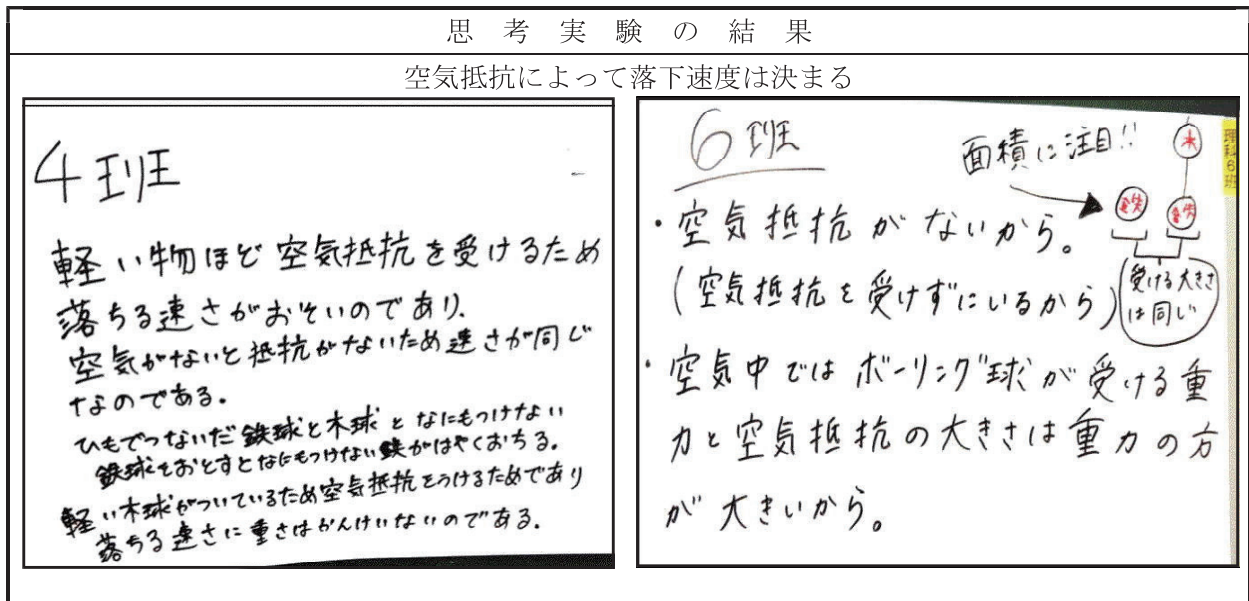 思考実験の結果
空気抵抗によって落下速度は決まる
4班
軽い物ほど空気抵抗を受けるため
落ちる速さがおそいのであり、
空気がないと抵抗がないため速さが同じ
なのである。
ひもでつないだ鉄球と木球となにもつけない
鉄球をおとすとなにもつけない鉄がはやくおちる。
軽い木球がついているため空気抵抗をうけるためであり
落ちる速さに重さはかんけいないのである。
6班
面積に注目!!
木
鉄
鉄
理科6班
受ける大きさ
は同じ
・空気抵抗がないから。
(空気抵抗を受けずにいるから)
・空気中ではボーリング球が受ける重
力と空気抵抗の大きさは重力の方
が大きいから。